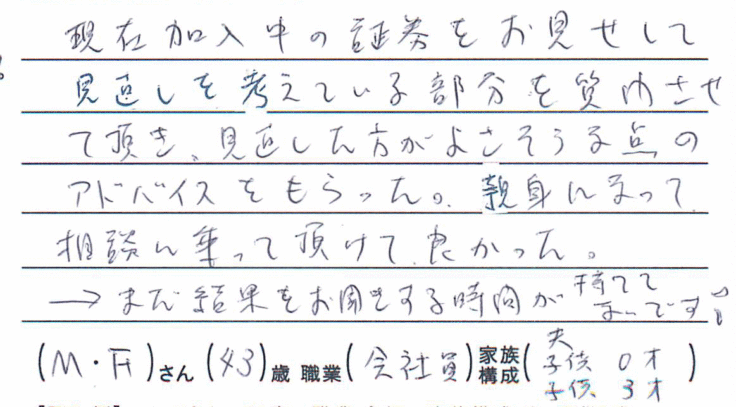 現在加入中の証券をお見せして
見直しを考えている部分を質問させ
て頂き、見直した方がよさそうな点の
アドバイスをもらった。親身になって
相談に乗って頂けて良かった。
→まだ結果をお聞きする時間が持てて
ないです
(M・H)さん(43)歳 職業(会社員)家族構成(夫 子供 0才 子供 3才)